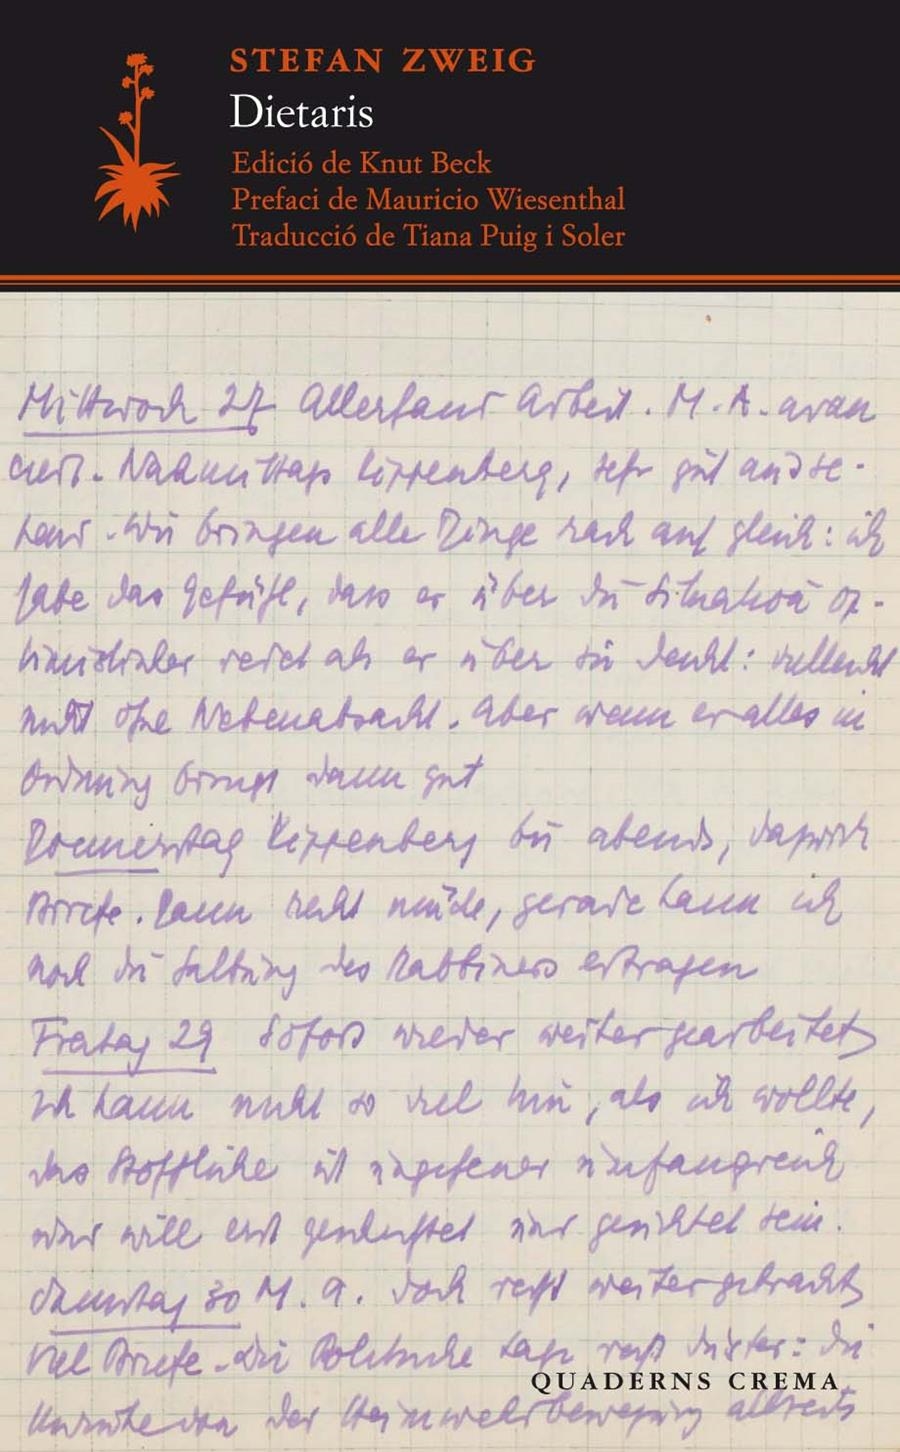 STEFAN ZWEIG
Dietaris
Edició de Knut Beck
Prefaci de Mauricio Wiesenthal
Traducció de Tiana Puig i Soler
Mittwoch 27 Allerhand Arbeit. M. A. avan
ciert. Nachmittags Kippenberg, sehr gut
Wir bringen alle Dinge rasch auf gleich: ich
habe das Gefühl, dass er über die Situation op-
timistischer redet als er über sie denkt: vielleicht
nicht ohne Nebenabsicht. Aber wenn er alles in
Ordnung bringt dann gut
Donnerstag Kippenberg bis abends, dazwisch
Briefe. Dann recht müde, gerade kann ich
noch die Salbung des Rabbiners ertragen
Freitag 29 Sofort wieder weitergearbeitet
ich kann nicht so viel tun, als ich wollte,
das Stoffliche ist ungeheuer umfangreich
und will erst gesichtet sein.
Samstag 30 M. A. doch recht weitergebracht
Viel Briefe. Die Politische Lage recht düster: die
der Heimwehrbewegung allseits
QUADERNS CREMA